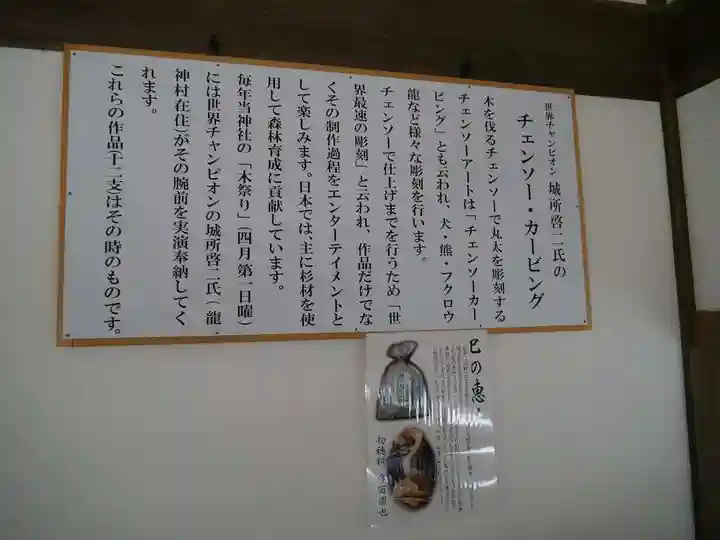 世界チャンピオン 城所啓二氏の
チェンソー・カービング
木を伐るチェンソーで丸太を彫刻する
チェンソーアートは「チェンソーカー
ビング」とも云われ、犬・熊・フクロウ
龍など様々な彫刻を行います。
チェンソーで仕上げまでを行うため「世
界最速の彫刻」と云われ、作品だけでな
くその制作過程をエンターテイメントと
して楽しみます。日本では、主に杉材を使
用して森林育成に貢献しています。
毎年当神社の「木祭り」(四月第一日曜)
には世界チャンピオンの城所啓二氏(龍
神村在住)がその腕前を実演奉納してく
れます。
これらの作品(十二支)はその時のものです。
巳の恵
初穂料